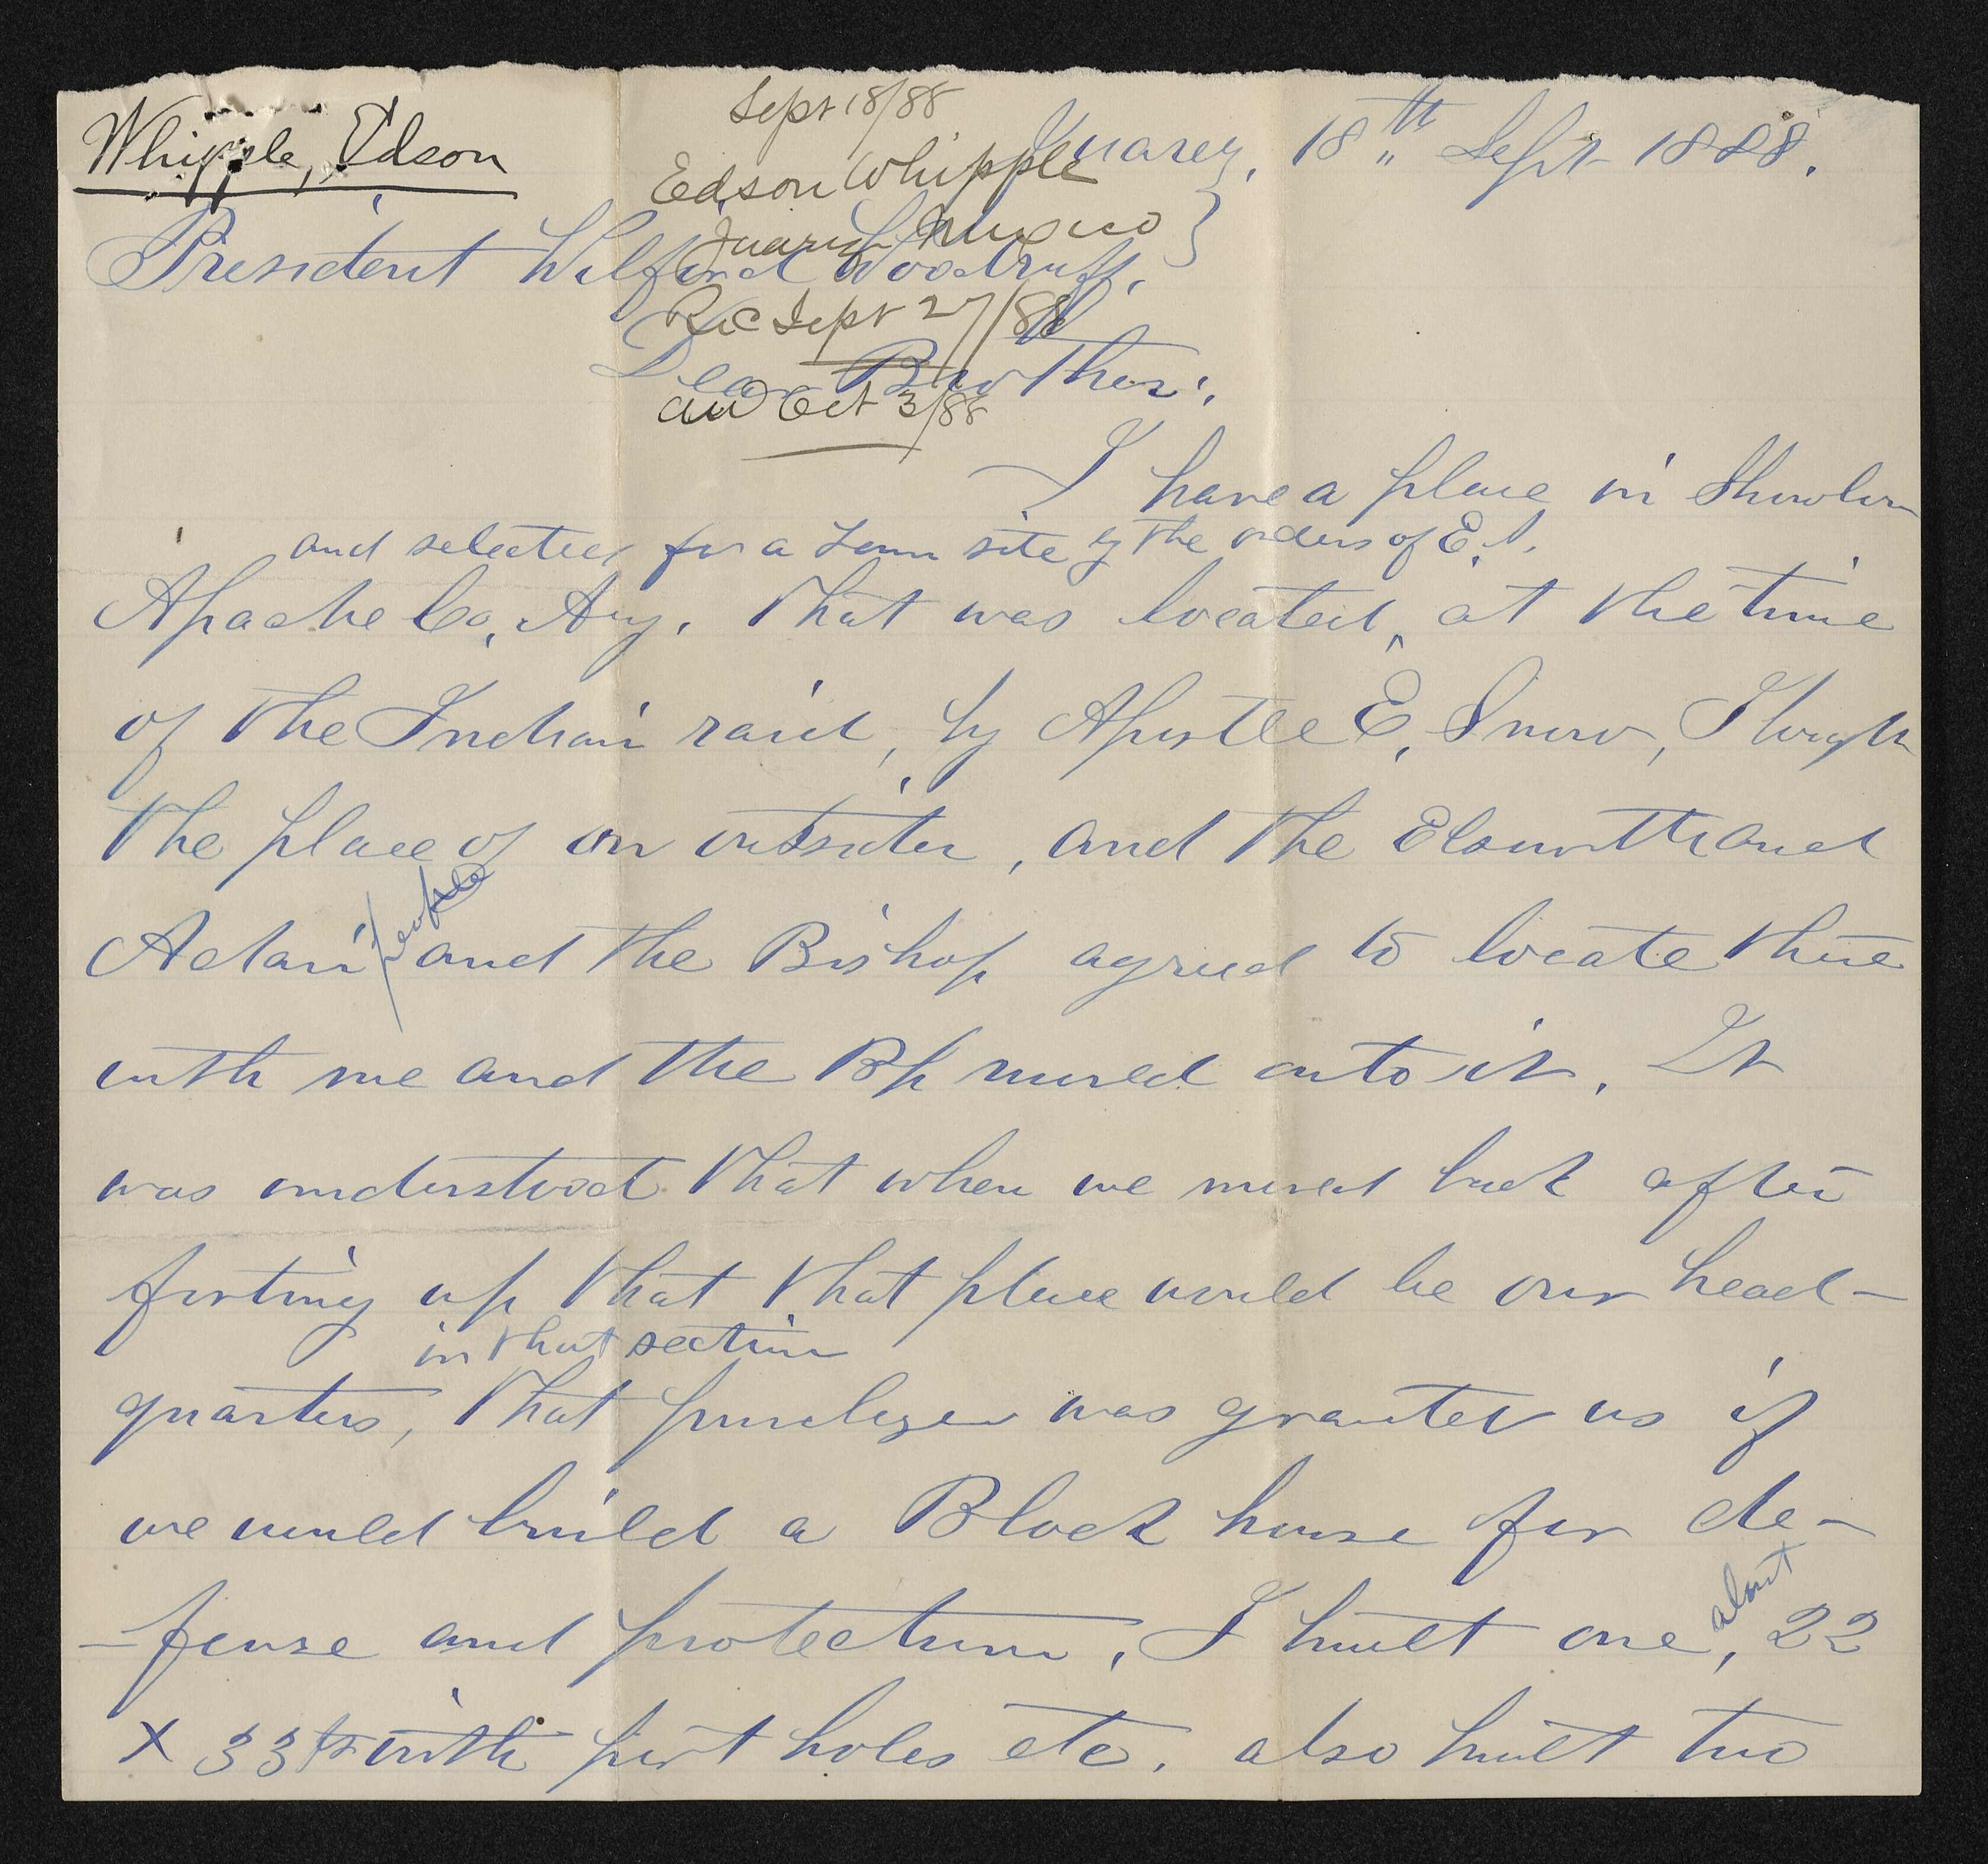 Whipple, Edson
Sept 18/88
Edson Whipple
Juarez Mexico }
Rec Sept 27/88
aw Oct 3/88
Juarez, 18th Sept 1888.
President Wilford Woodruff,
Dear Brother;
I have a place in Showlow
and selected for a Town site by the orders of E. S.
Apache Co, Ary. that was located, at the time
of the Indian raid, by Apostle E. Snow, I bought
the place of an outsider, and the Elsworth and
Adair people and the Bishop agreed to locate there
with me and the Bp moved onto it. It
was understood that when we moved back after
forting up that that place would be our head-
in that section
quarters, that privelege was granted us if
we would build a Block house for de-
-fense and protection, I built one, about 22
x 33 ft with port holes etc. also built two